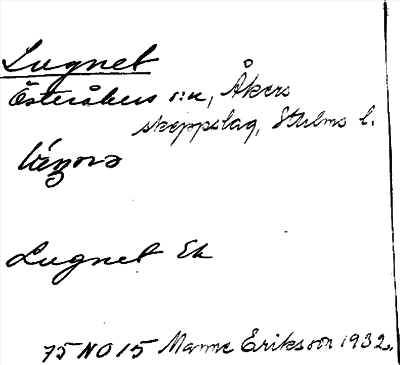 Lugnet
Österåkers s:n, Åkers
skeppslag, Sthlms l.
Lugnet Ek
75 NO 15 Manne Eriksson 1932.